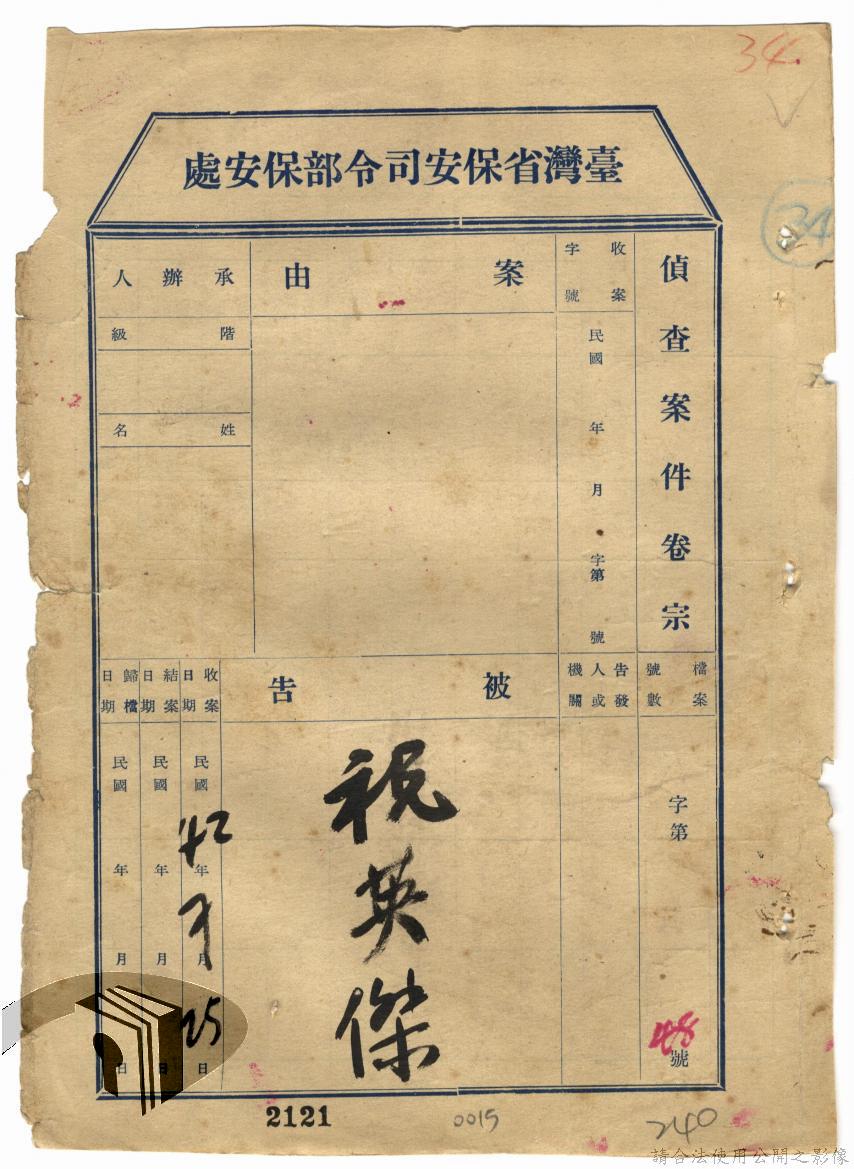 34
34
臺灣省保安司令部保安處
偵查案件卷宗
收案字號
民國 年 月 字第 號
案由
承辦人
階級
姓名
檔案號數
字第 48 號
告發人或機關
被告
祝英傑
收案日期
民國 42 年 月 25 日
結案日期
民國 年 月 日
歸檔日期
民國 年 月 日
2121
0015
240
請合法使用公開之影像